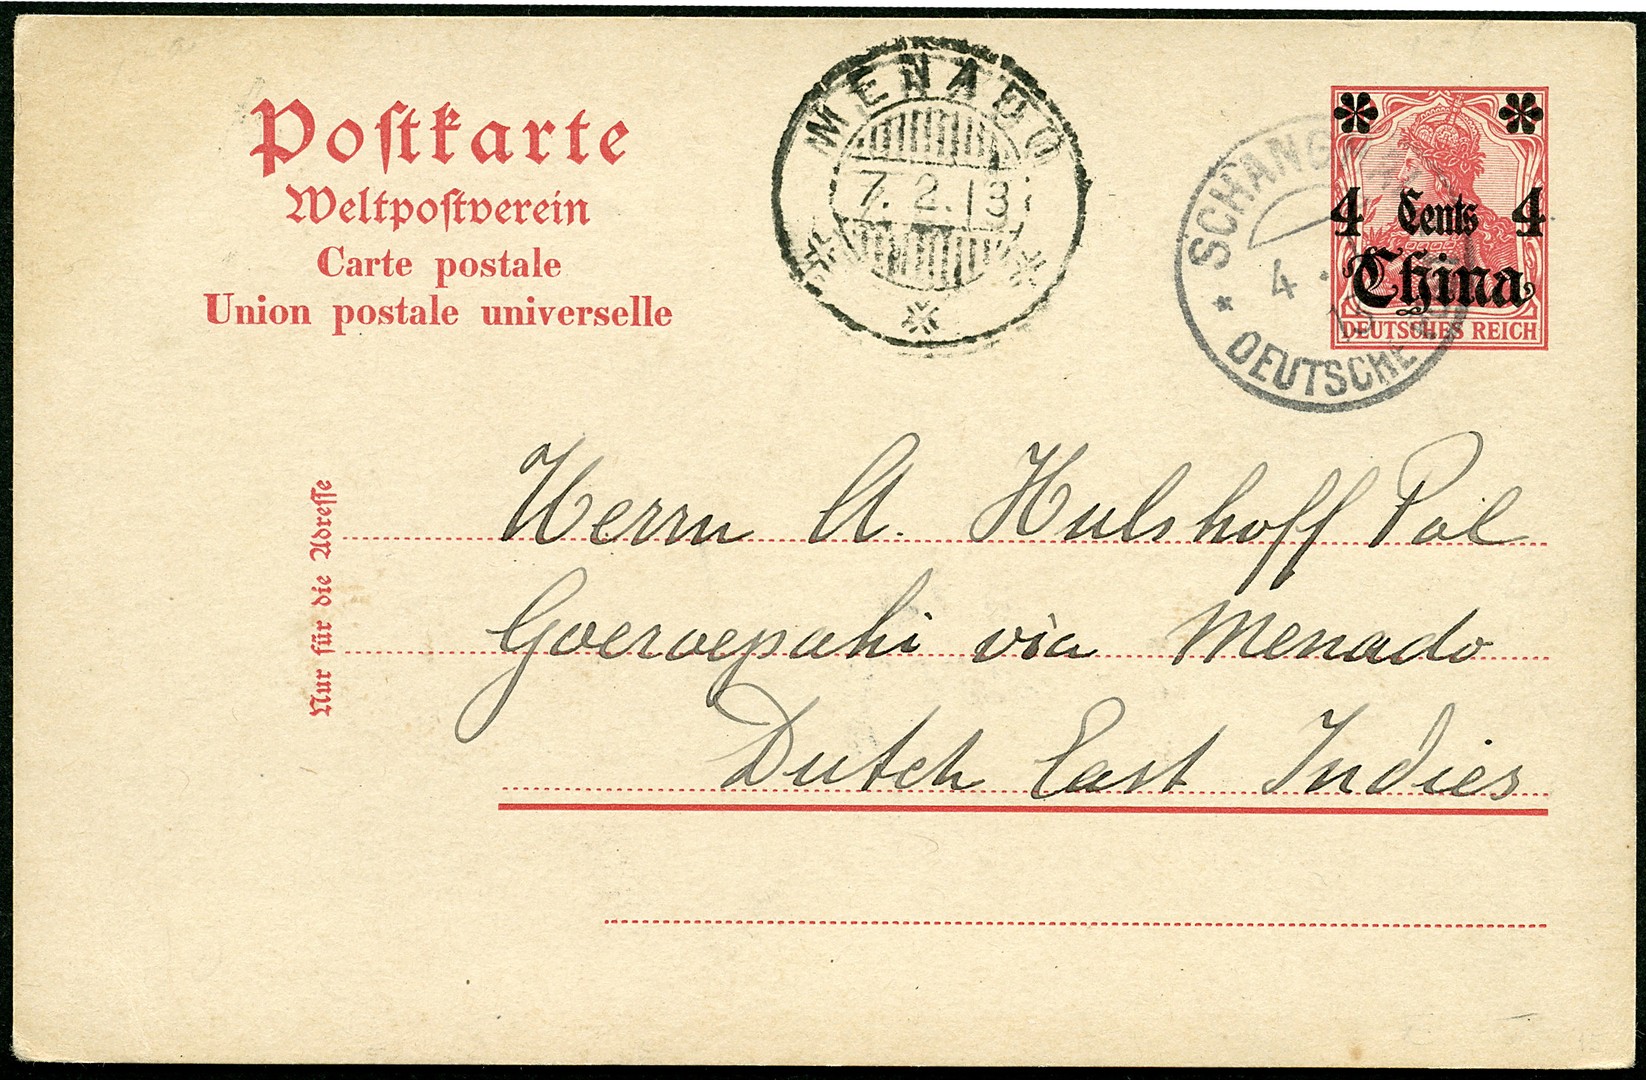 Postkarte
Weltpostverein
Carte postale
Union postale universelle
Nur für die Adresse
MENADO
7.2.13
SCHANG
4
DEUTSCHE
4 Cents 4
China
DEUTSCHES REICH
Herrn A. Hulshoff Pol
Goeroepahi via Menado
Dutch East Indies